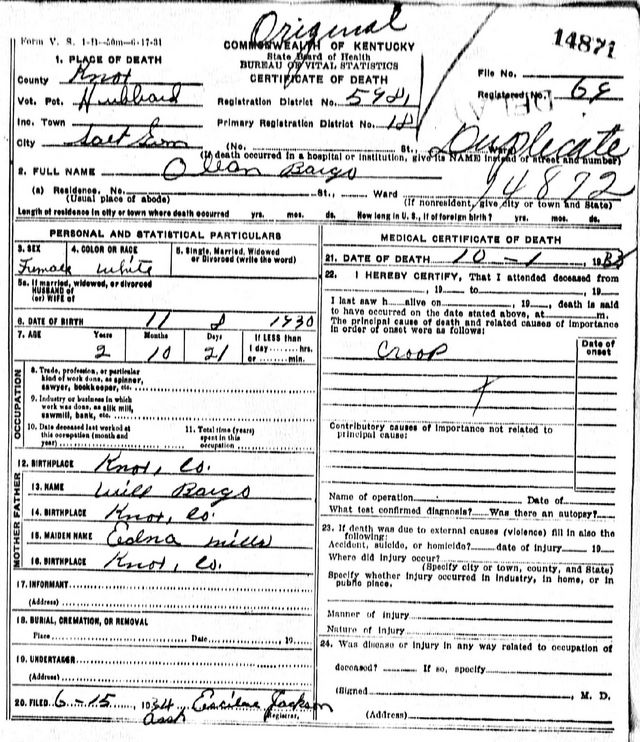 Original
Form V. S. 1-D-50m-6-17-31
COMMONWEALTH OF KENTUCKY
State Board of Health
BUREAU OF VITAL STATISTICS
CERTIFICATE OF DEATH
14871
1. PLACE OF DEATH
County Knox
Vot. Pct. Hubbard
Inc. Town
City Salt Gum
Registration District No. 5981
Primary Registration District No. 18
File No.
Registered No. 69
Duplicate
14872
(No. St., Ward)
(If death occurred in a hospital or institution, give its NAME instead of street and number)
2. FULL NAME Olean Bargo
(a) Residence. No. St., Ward
(Usual place of abode) (If nonresident, give city or town and State)
Length of residence in city or town where death occurred yrs. mos. ds. How long in U. S., if of foreign birth? yrs. mos. ds.
PERSONAL AND STATISTICAL PARTICULARS
3. SEX Female
4. COLOR OR RACE White
5. Single, Married, Widowed or Divorced (write the word)
5a. If married, widowed, or divorced
HUSBAND of
(or) WIFE of
6. DATE OF BIRTH 11 8 1930
7. AGE Years Months Days If LESS than
2 10 21 1 day hrs.
or min.
OCCUPATION
8. Trade, profession, or particular
kind of work done, as spinner,
sawyer, bookkeeper, etc.
9. Industry or business in which
work was done, as silk mill,
sawmill, bank, etc.
10. Date deceased last worked at
this occupation (month and
year)
11. Total time (years)
spent in this
occupation
12. BIRTHPLACE Knox, Co.
FATHER
13. NAME Will Bargo
14. BIRTHPLACE Knox, Co.
MOTHER
15. MAIDEN NAME Edna Mills
16. BIRTHPLACE Knox, Co.
17. INFORMANT
(Address)
18. BURIAL, CREMATION, OR REMOVAL
Place Date , 19
19. UNDERTAKER
(Address)
20. FILED 6-15, 1934 Jackson
Asst Registrar.
MEDICAL CERTIFICATE OF DEATH
21. DATE OF DEATH 10-1, 1933
22. I HEREBY CERTIFY, That I attended deceased from
, 19 to , 19
I last saw h alive on , 19 , death is said
to have occurred on the date stated above, at m.
The principal cause of death and related causes of importance
in order of onset were as follows:
Date of onset
Croop
Contributory causes of importance not related to
principal cause:
Name of operation Date of
What test confirmed diagnosis? Was there an autopsy?
23. If death was due to external causes (violence) fill in also the
following:
Accident, suicide, or homicide? date of injury 19
Where did injury occur?
(Specify city or town, county, and State)
Specify whether injury occurred in industry, in home, or in
public place.
Manner of injury
Nature of injury
24. Was disease or injury in any way related to occupation of
deceased? If so, specify
(Signed , M. D.
(Address)